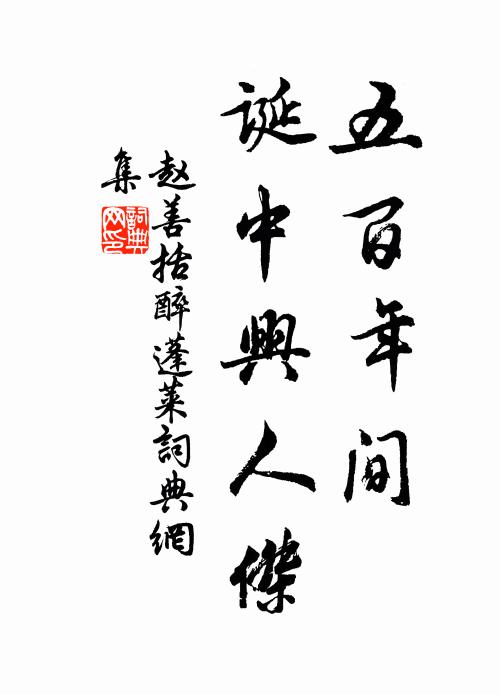 五百年间
诞中興人傑
赵善括醉蓬莱詞典網
集
詞典网印